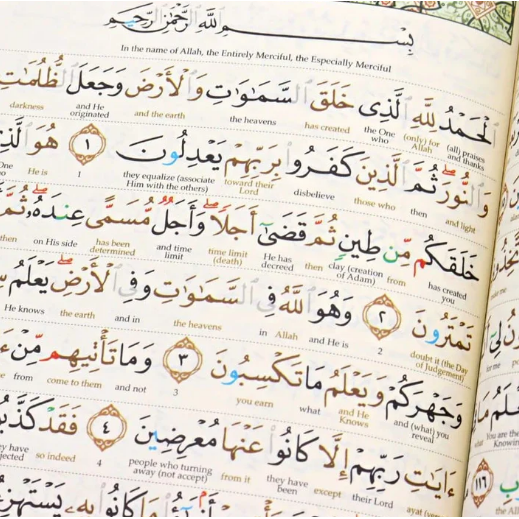 بِسْمِ اللَّهِ الرَّحْمَٰنِ الرَّحِيمِ
In the name of Allah, the Entirely Merciful, the Especially Merciful
الْحَمْدُ لِلَّهِ الَّذِى خَلَقَ السَّمَٰوَٰتِ وَالْأَرْضَ وَجَعَلَ الظُّلُمَٰتِ
(all) praises and thanks (only) for Allah the One who has created the heavens and the earth and He originated darkness
وَالنُّورَ ۖ ثُمَّ الَّذِينَ كَفَرُوا بِرَبِّهِمْ يَعْدِلُونَ ١ هُوَ
and light then those who disbelieve toward their Lord they equalize (associate Him with the others) 1 He is
خَلَقَكُم مِّن طِينٍ ثُمَّ قَضَىٰٓ أَجَلًا ۖ وَأَجَلٌ مُّسَمًّى عِندَهُۥ ۖ ثُمَّ
has created you from clay (creation of Adam) then He has decreed time limit (death) and time limit has been determined on His side then
تَمْتَرُونَ ٢ وَهُوَ اللَّهُ فِى السَّمَٰوَٰتِ وَفِى الْأَرْضِ ۖ يَعْلَمُ
doubt it (the Day of Judgement) 2 and He is Allah in the heavens and in the earth He knows
وَجَهْرَكُمْ وَيَعْلَمُ مَا تَكْسِبُونَ ٣ وَمَا تَأْتِيهِم مِّنْ
and (what) you reveal and He Knows what you earn 3 and not come to them from
ءَايَٰتِ رَبِّهِمْ إِلَّا كَانُوا عَنْهَا مُعْرِضِينَ ٤ فَقَدْ
their Lord except they have been from it people who turning away (not accept) 4 so indeed
كَانُوا بِهِۦ
١١٦